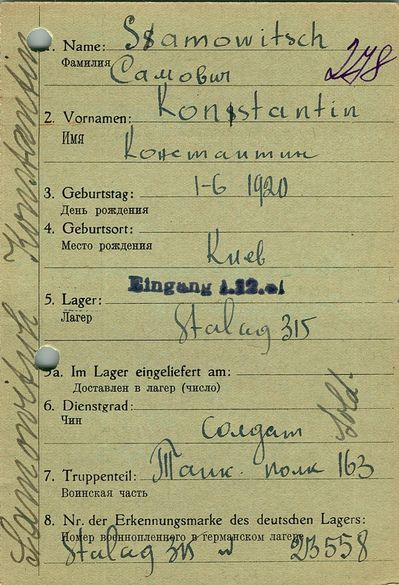 1. Name: Ssamowitsch
Фамилия Самович
278
2. Vornamen: Konsstantin
Имя Константин
3. Geburtstag: 1-6 1920
День рождения
4. Geburtsort:
Место рождения Киев
Eingang 1.12.41
5. Lager:
Лагерь Stalag 315
5a. Im Lager eingeliefert am:
Доставлен в лагерь (число)
6. Dienstgrad:
Чин солдат Sold.
7. Truppenteil: Танк. полк 163
Воинская часть
8. Nr. der Erkennungsmarke des deutschen Lagers:
Номер военнопленного в германском лагере
Stalag 315 23558
Samowitsch Konstantin